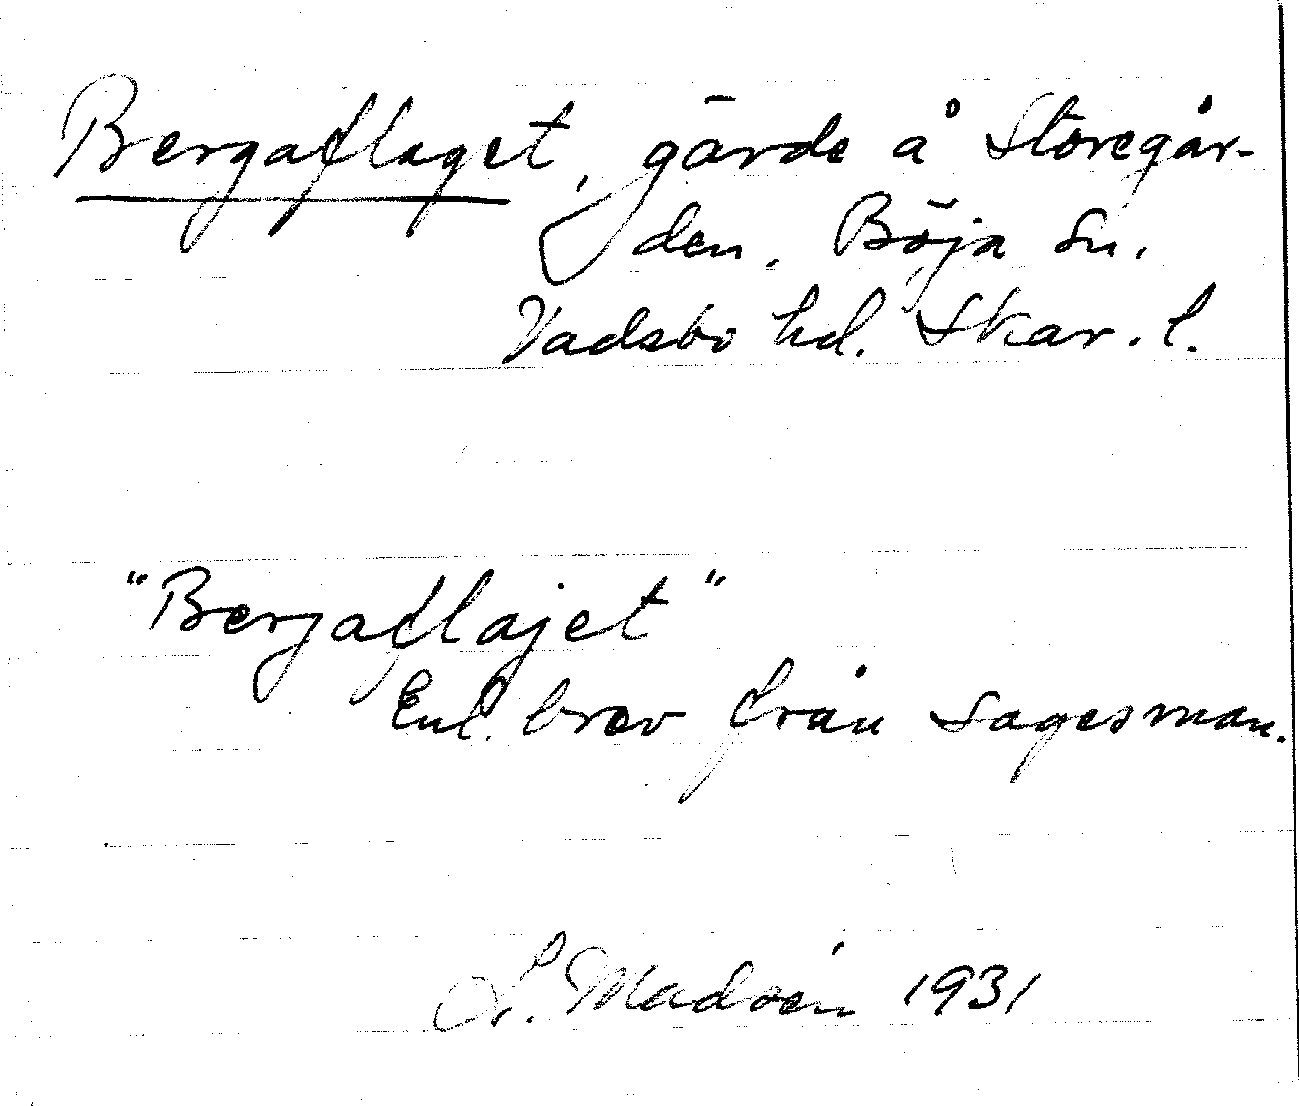 Bergaflaget, gärde å Storegår-
den. Böja sn.
Vadsbo hd. Skar. l.
"Berjaflajet"
Enl. brev från sagesman.
L. Madsén 1931